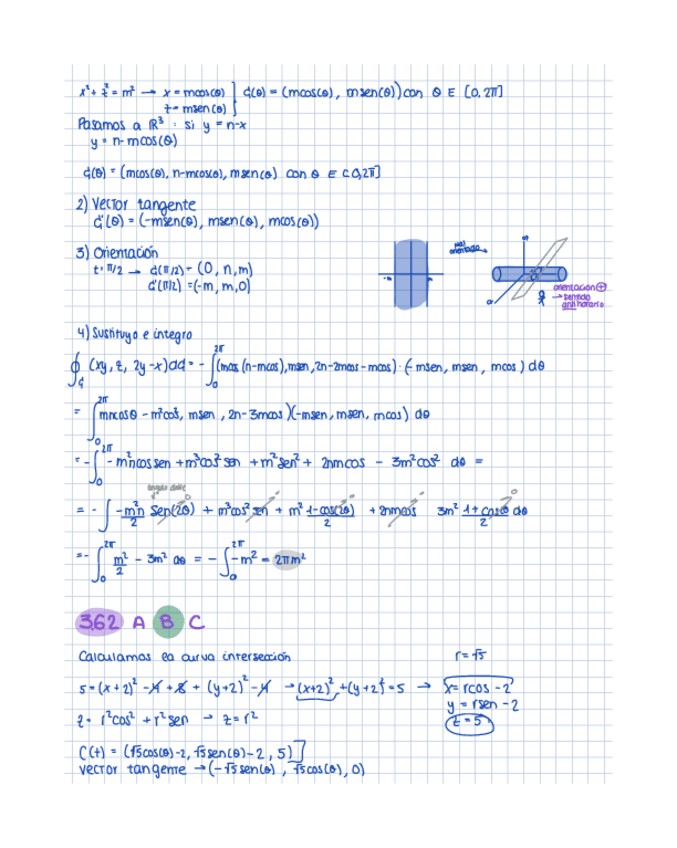 x² + z² = m² → x = mcos(θ) ] ɑ(θ) = (mcos(θ), msen(θ)) con θ ∈ [0, 2π]
z = msen(θ)
Pasamos a ℝ³ : si y = n-x
y = n-mcos(θ)
ɑ(θ) = (mcos(θ), n-mcos(θ), msen(θ) con θ ∈ [0,2π]
2) Vector tangente
ɑ'(θ) = (-msen(θ), msen(θ), mcos(θ))
3) Orientación
t = π/2 → ɑ(π/2) = (0, n, m)
ɑ'(π/2) = (-m, m, 0)
mal orientada
orientacion ⊕
→ sentido
antihorario
4) Sustituyo e integro
∮ɑ (xy, z, 2y-x)dɑ = - ∫₀^2π (mcos(n-mcos), msen, 2n-2mcos-mcos) · (-msen, msen, mcos) dθ
= ∫₀^2π mncosθ - m²cos², msen, 2n-3mcos)(-msen, msen, mcos) dθ
= - ∫₀^2π -m²ncossen + m³cos²sen + m²sen² + 2nmcos - 3m²cos² dθ =
angulo doble
= - ∫ -m²n/2 sen(2θ) + m³cos²sen + m² 1-cos(2θ)/2 + 2nmcos 3m² 1+cos2θ/2 dθ
= - ∫₀^2π m²/2 - 3m² dθ = - ∫₀^2π -m² = 2πm²
3.62 A B C
Calculamos la curva intersección r = √5
5 = (x+2)² - 4 + 8 + (y+2)² - 4 → (x+2)² + (y+2)² = 5 → x = rcos - 2
y = rsen - 2
z = r²cos² + r²sen → z = r² z = 5
C(t) = (√5cos(θ)-2, √5sen(θ)-2, 5)]
vector tangente → (-√5sen(θ), √5cos(θ), 0)